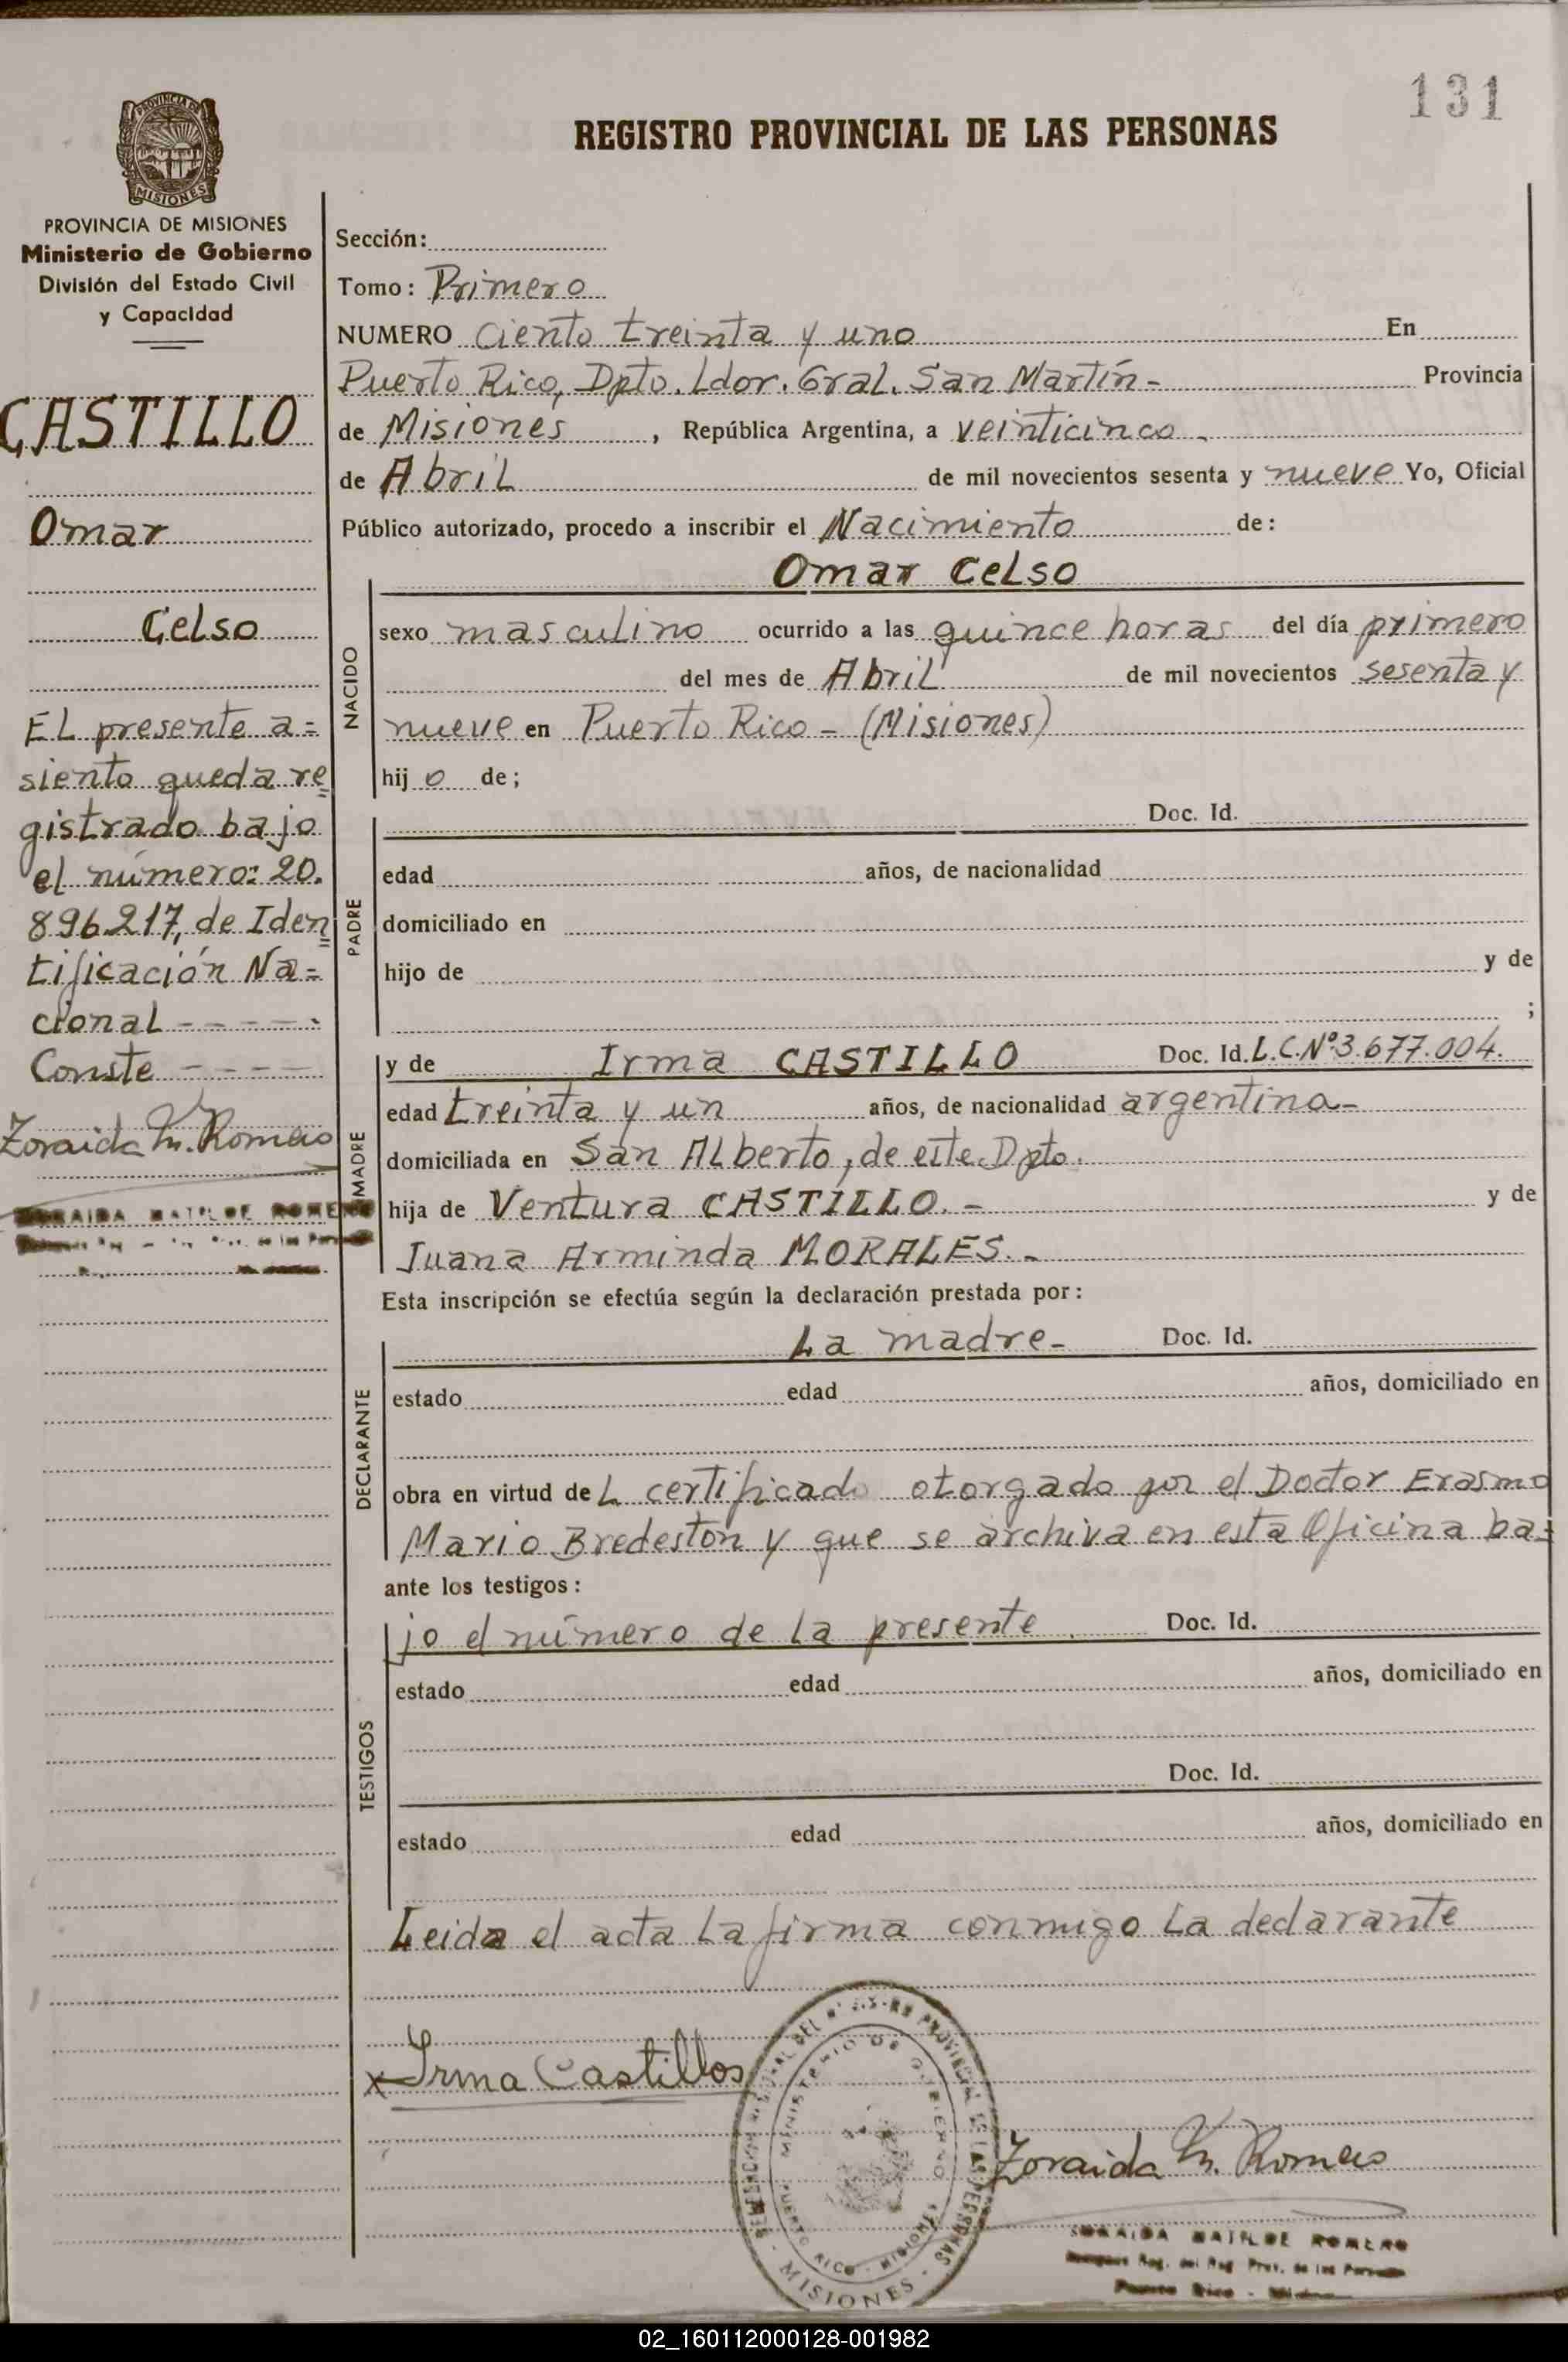 131
REGISTRO PROVINCIAL DE LAS PERSONAS
PROVINCIA DE MISIONES
PROVINCIA DE MISIONES
Ministerio de Gobierno
División del Estado Civil
y Capacidad
CASTILLO
Omar
Celso
EL presente a=
siento queda re=
gistrado bajo
el número: 20.
896.217, de Iden=
tificación Na=
cional - - - - -
Conste - - - -
Zoraida M. Romero
ZORAIDA MATILDE ROMERO
Sección:
Tomo: Primero
NUMERO Ciento treinta y uno En
Puerto Rico, Dpto. Ldor. Gral. San Martín- Provincia
de Misiones , República Argentina, a veinticinco -
de Abril de mil novecientos sesenta y nueve Yo, Oficial
Público autorizado, procedo a inscribir el Nacimiento de:
Omar Celso
NACIDO
sexo masculino ocurrido a las quince horas del día primero
del mes de Abril de mil novecientos sesenta y
nueve en Puerto Rico - (Misiones)
hij o de;
Doc. Id.
PADRE
edad años, de nacionalidad
domiciliado en
hijo de y de
;
y de Irma CASTILLO Doc. Id. L.C.Nº3.677.004.
MADRE
edad treinta y un años, de nacionalidad argentina-
domiciliada en San Alberto, de este Dpto.
hija de Ventura CASTILLO. - y de
Juana Arminda MORALES. -
Esta inscripción se efectúa según la declaración prestada por:
La madre- Doc. Id.
DECLARANTE
estado edad años, domiciliado en
obra en virtud de L certificado otorgado por el Doctor Erasmo
Mario Bredeston y que se archiva en esta Oficina ba=
ante los testigos:
jo el número de la presente. Doc. Id.
TESTIGOS
estado edad años, domiciliado en
Doc. Id.
estado edad años, domiciliado en
Leida el acta La firma conmigo La declarante
x Irma Castillos
PROVINCIAL DE LAS PERSONAS
MINISTERIO DE GOBIERNO
PUERTO RICO - MISIONES
- MISIONES -
Zoraida M. Romero
ZORAIDA MATILDE ROMERO
Reg. del Reg. Prov. de las Personas
Puerto Rico - Misiones
02_160112000128-001982